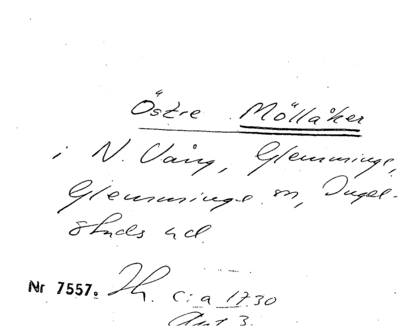 Östre Möllåker
i N. Vång, Glemminge,
Glemminge sn, Ingel-
stads hd.
Nr 7557. Th. c:a 1730
Akt 3.